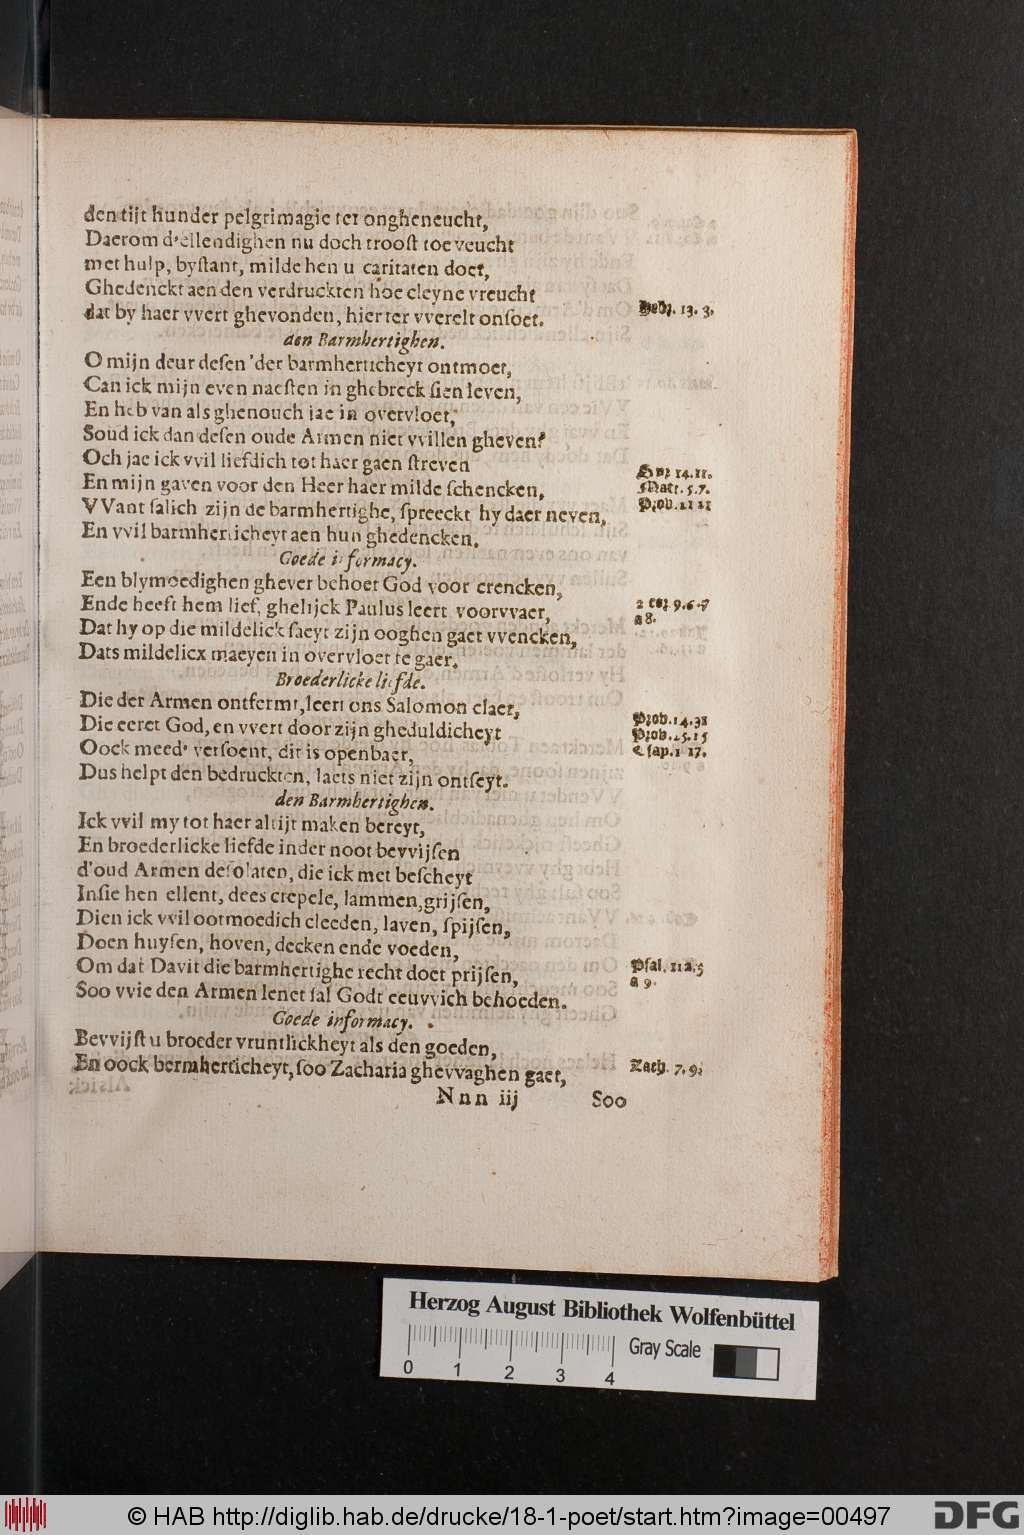 den tijt hunder pelgrimagie ter ongheneucht,
Daerom d'ellendighen nu doch troost toeveucht
met hulp, bystant, milde hen u caritaten doet,
Ghedenckt aen den verdruckten hoe cleyne vreucht
dat by haer vvert ghevonden, hier ter vverelt onsoet. Hebr. 13. 3.
den Barmhertighen.
O mijn deur desen 'der barmherticheyt ontmoet,
Can ick mijn even naesten in ghebreck sien leven,
En heb van als ghenouch jae in overvloet;
Soud ick dan desen oude Armen niet vvillen gheven?
Och jae ick vvil liefdich tot haer gaen streven
En mijn gaven voor den Heer haer milde schencken, 14. 11.
VVant salich zijn de barmhertighe, spreeckt hy daer neven, Matt. 5. 7.
En vvil barmherticheyt aen hun ghedencken. Prob. 21 21
Goede informacy.
Een blymoedighen ghever behoet God voor crencken,
Ende heeft hem lief, ghelijck Paulus leert voorvvaer, 2 Cor 9. 6. 7
Dat hy op die mildelick saeyt zijn ooghen gaet vvencken, a 8.
Dats mildelicx maeyen in overvloet te gaer.
Broederlicke liefde.
Die der Armen ontfermt, leert ons Salomon claer,
Die eeret God, en vvert door zijn gheduldicheyt Prob. 14. 31
Oock meed' versoent, dit is openbaer, Prob. 15. 15
Dus helpt den bedruckten, laets niet zijn ontseyt. Esap. 1 17.
den Barmhertighen.
Ick vvil my tot haer altijt maken bereyt,
En broederlicke liefde inder noot bevvijsen
d'oud Armen desolaten, die ick met bescheyt
Insie hen ellent, dees crepele, lammen, grijsen,
Dien ick vvil ootmoedich cleeden, laven, spijsen,
Doen huysen, hoven, decken ende voeden,
Om dat Davit die barmhertighe recht doet prijsen, Psal. 112. 5
Soo vvie den Armen lenet sal Godt eeuvvich behoeden. a 9.
Goede informacy.
Bevvijst u broeder vruntlickheyt als den goeden,
En oock bermherticheyt, soo Zacharia ghevvaghen gaet, Zach. 7. 9.
Nnn iij Soo
Herzog August Bibliothek Wolfenbüttel
0 1 2 3 4 Gray Scale
© HAB http://diglib.hab.de/drucke/18-1-poet/start.htm?image=00497 DFG